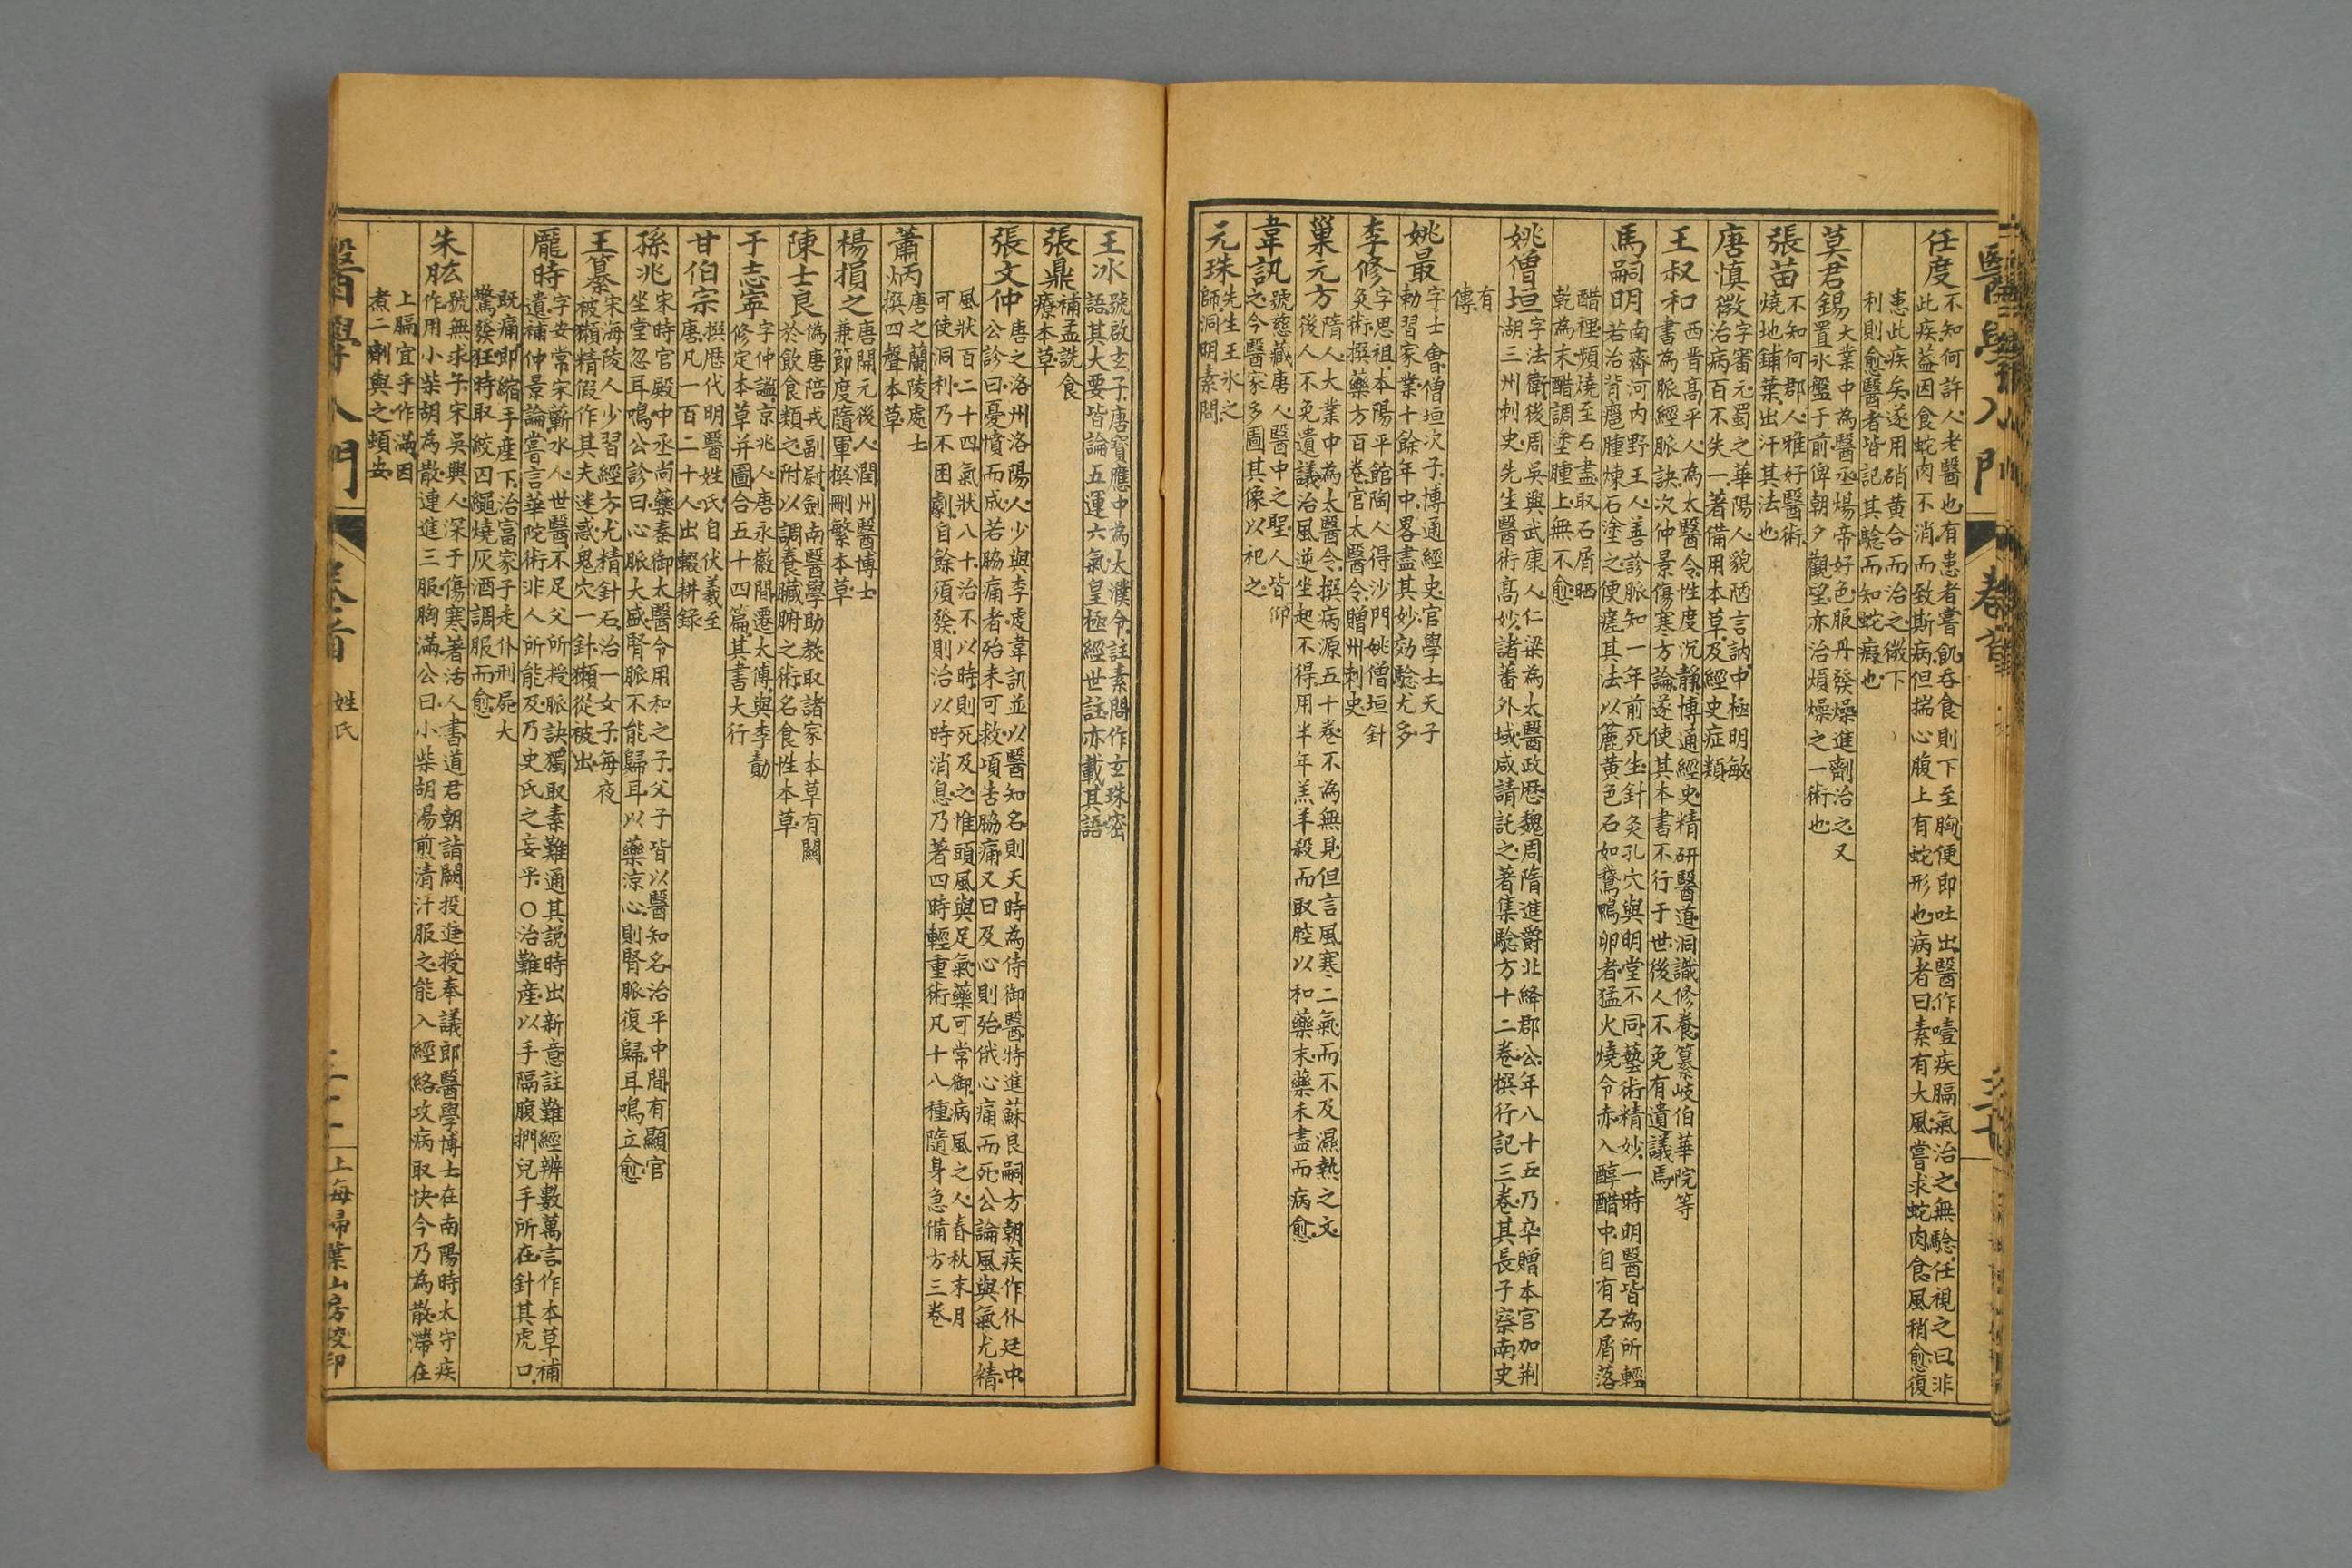 醫學入門 卷首
任度 不知何許人老醫也有患者嘗飢吞食則下至胸便即吐出醫作噎疾膈氣治之無驗任視之曰非
此疾蓋因食蛇肉不消而致斯病但揣心腹上有蛇形也病者曰素有大風嘗求蛇肉食風稍愈復
患此疾矣遂用硝黃合而治之微下
利則愈醫者皆記其驗而知蛇瘕也
莫君錫 大業中為醫丞煬帝好色服丹發燥進劑治之又
置氷盤于前俾朝夕觀望亦治煩燥之一術也
張苗 不知何郡人雅好醫術
燒地鋪葉出汗其法也
唐慎微 字審元蜀之華陽人貌陋言訥中極明敏
治病百不失一著備用本草及經史症類
王叔和 西晋高平人為太醫令性度沉靜博通經史精研醫道洞識修養纂岐伯華院等
書為脈經脈訣次仲景傷寒方論遂使其本書不行于世後人不免有遺議焉
馬嗣明 南齋河內野王人善診脈知一年前死生針灸孔穴與明堂不同藝術精妙一時明醫皆為所輕
若治背瘡腫煉石塗之便瘥其法以麄黃色石如鵞鴨卵者猛火燒令赤入醇醋中自有石屑落
醋裡頻燒至石盡取石屑晒
乾為末醋調塗腫上無不愈
姚僧垣 字法衛後周吳興武康人仁梁為太醫政歷魏周隋進爵北絳郡公年八十五乃卒贈本官加荆
湖三州刺史先生醫術高妙諸蕃外域咸請託之著集驗方十二卷撰行記三卷其長子察南史
有
傳
姚最 字士會僧垣次子博通經史官學士天子
勅習家業十餘年中畧盡其妙効驗尤多
李修 字思祖本陽平館陶人得沙門姚僧垣針
灸術撰藥方百卷官太醫令贈州刺史
巢元方 隋人大業中為太醫令撰病源五十卷不為無見但言風寒二氣而不及濕熱之文
後人不免遺議治風逆坐起不得用半年羔羊殺而取腔以和藥末藥未盡而病愈
韋訊 號慈藏唐人醫中之聖人皆仰
之今醫家多圖其像以祀之
元珠 先生王氷之
師洞明素問
王冰 號啟玄子唐寶應中為太濮令註素問作玄珠密
語其大要皆論五運六氣皇極經世註亦載其語
張鼎 補孟詵食
療本草
張文仲 唐之洛州洛陽人少與李虔韋訊並以醫知名則天時為侍御醫特進蘇良嗣方朝疾作仆廷中
公診曰憂憤而成若脇痛者殆未可救項吿脇痛又曰及心則殆俄心痛而死公論風與氣尤精
風狀百二十四氣狀八十治不以時則死及之惟頭風與足氣藥可常御病風之人春秋末月
可使洞利乃不困劇自餘須發則治以時消息乃著四時輕重術凡十八種隨身急備方三卷
蕭炳 唐之蘭陵處士
撰四聲本草
楊損之 唐開元後人潤州醫博士
兼節度隨軍撰刪繁本草
陳士良 偽唐陪戎副尉劍南醫學助教取諸家本草有關
於飲食類之附以調養臟腑之術名食性本草
于志寧 字仲謐京兆人唐永嶶間遷太傅與李勣
修定本草并圖合五十四篇其書大行
甘伯宗 撰歷代明醫姓氏自伏羲至
唐凡一百二十人出輟耕錄
孫兆 宋時官殿中丞尚藥奏御太醫令用和之子父子皆以醫知名治平中間有顯官
坐堂忽耳鳴公診曰心脈大盛腎脈不能歸耳以藥涼心則腎脈復歸耳鳴立愈
王纂 宋海陵人少習經方尤精針石治一女子每夜
被獺精假作其夫迷惑鬼穴一針獺從被出
龎時 字安常宋蘄水人世醫不足父所授脈訣獨取素難通其說時出新意註難經辨數萬言作本草補
遺補仲景論嘗言華院術非人所能及乃史氏之妄乎○治難產以手隔腹捫兒手所在針其虎口
既痛即縮手產下治富家子走仆刑屍大
驚發狂時取絞囚繩燒灰酒調服而愈
朱肱 號無求子宋吳興人深于傷寒著活人書道君朝詣闕投進授奉議郎醫學博士在南陽時太守疾
作用小柴胡為散連進三服胸滿公曰小柴胡湯煎清汁服之能入經絡攻病取快今乃為散滯在
上膈宜乎作滿因
煮二劑與之頓安
醫學入門 卷首 姓氏 上海掃葉山房校印